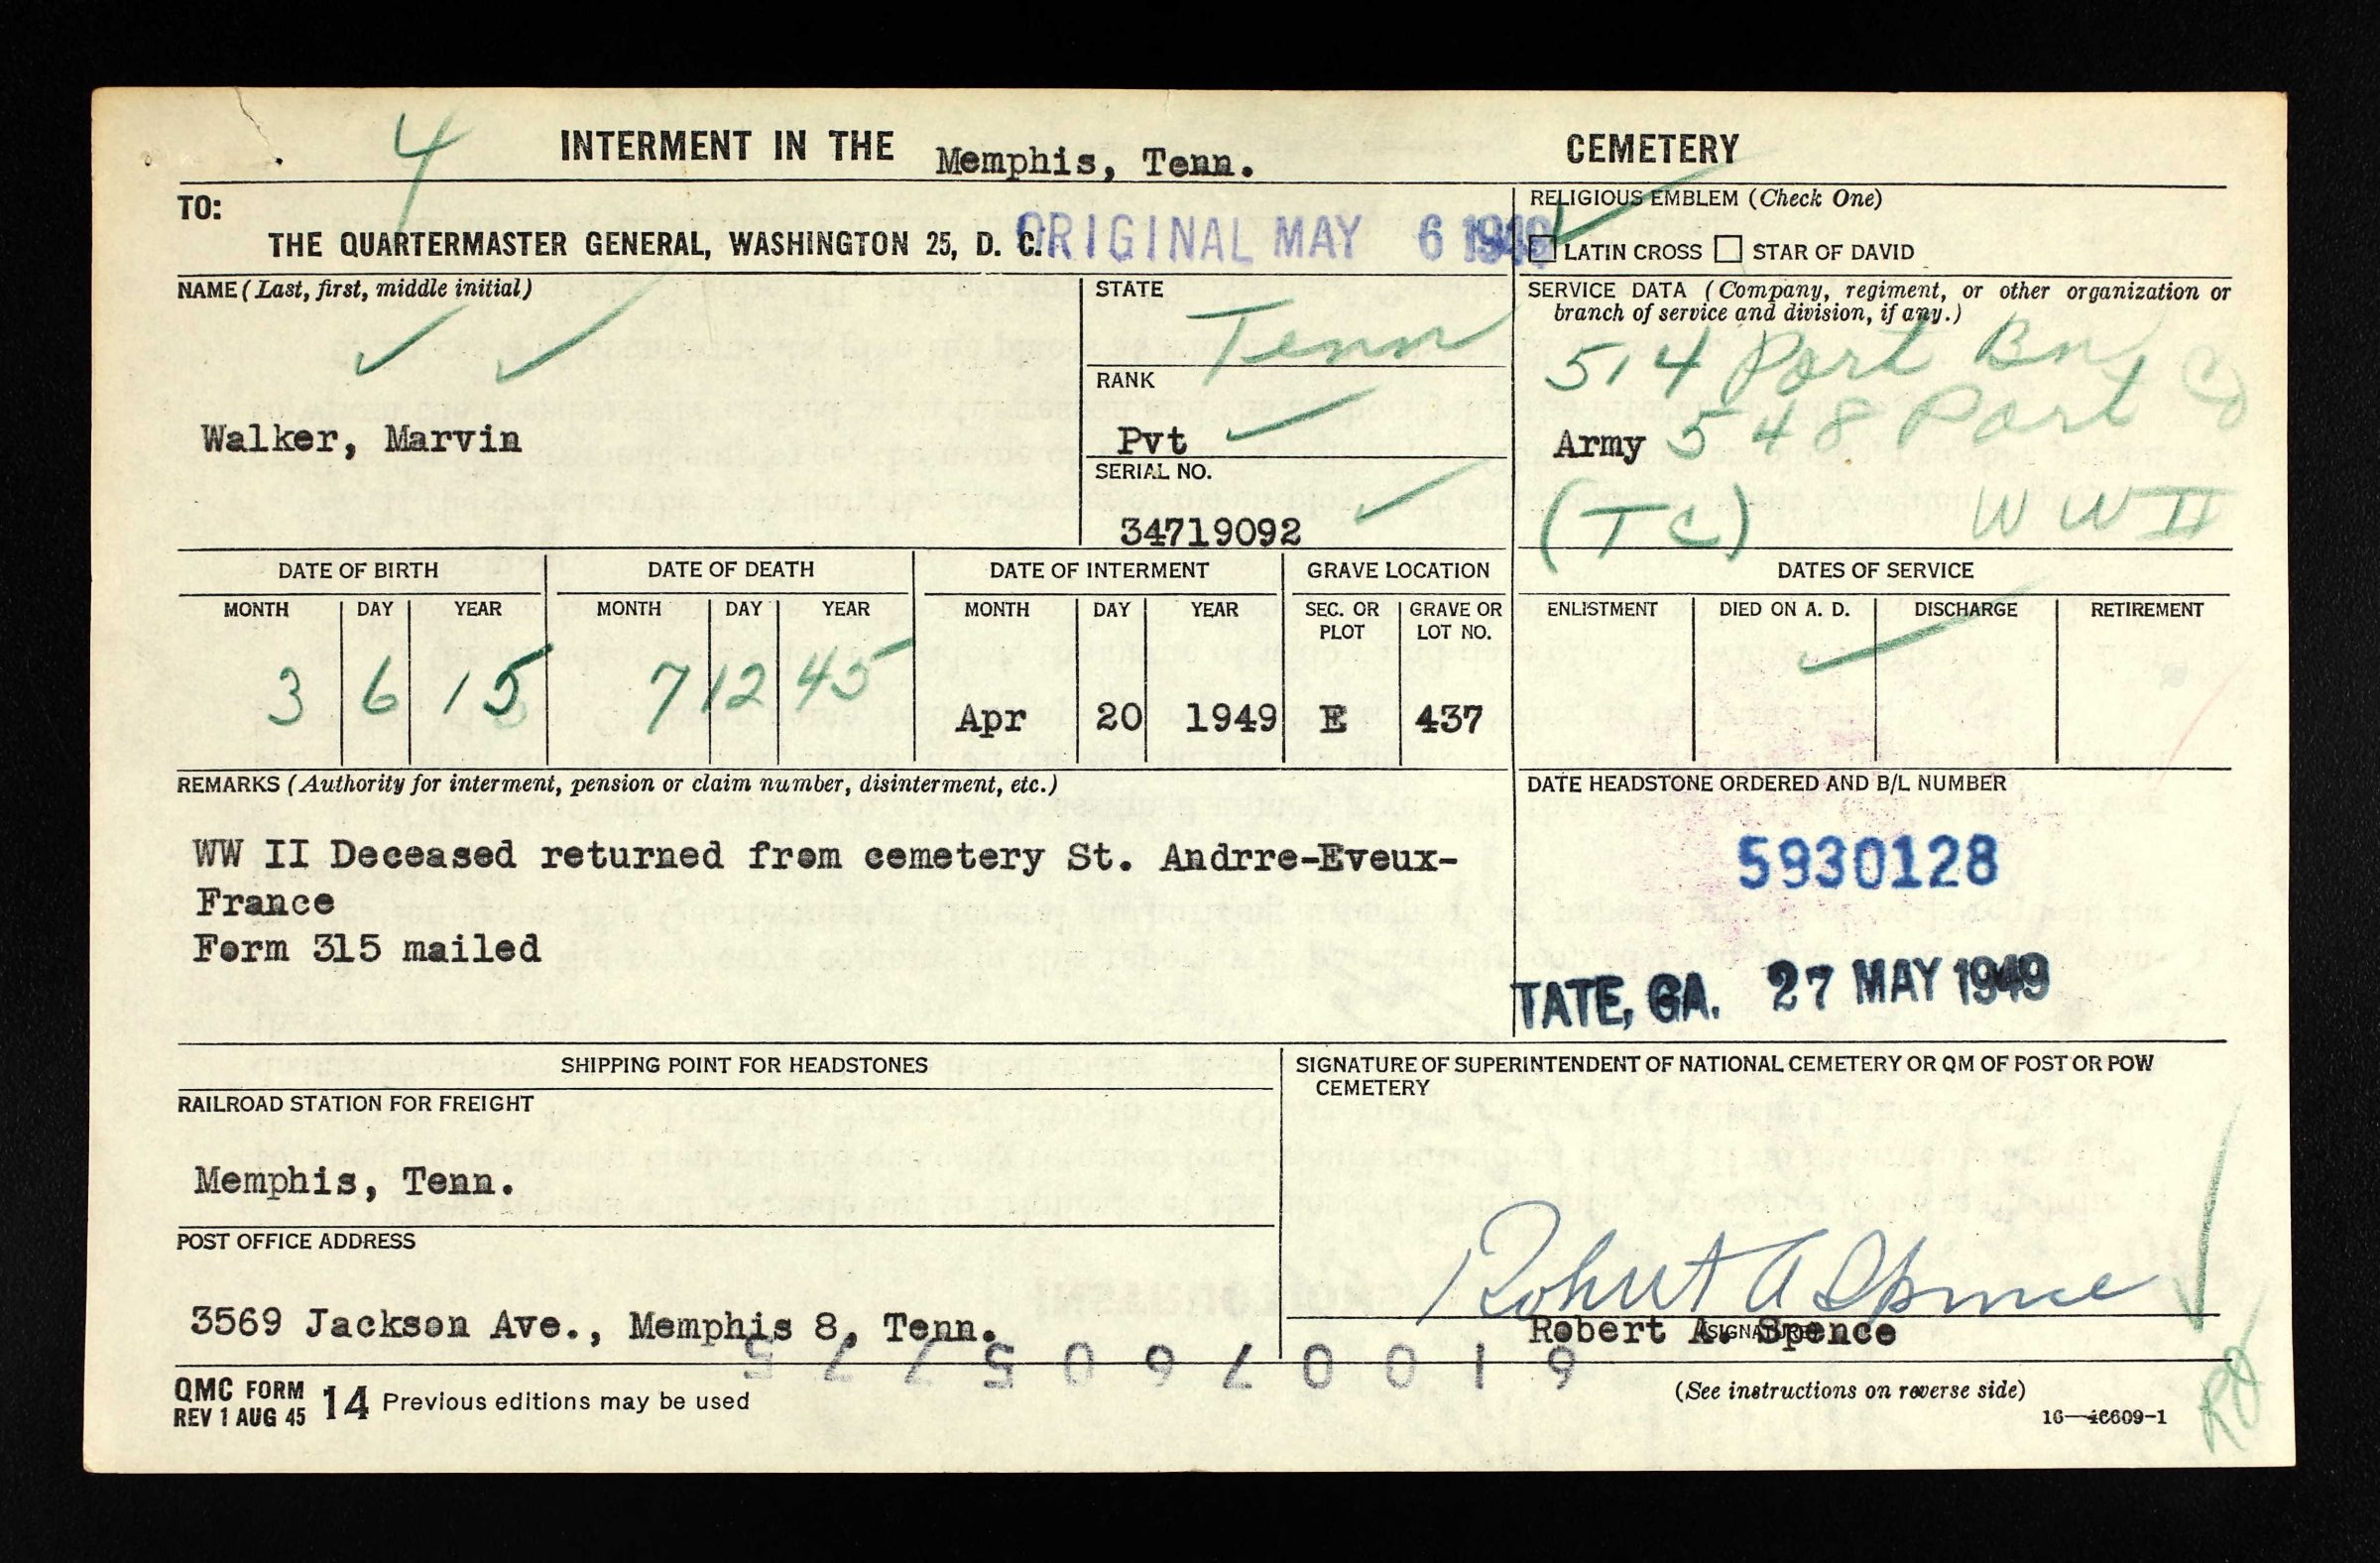 4
INTERMENT IN THE Memphis, Tenn. CEMETERY
TO:
THE QUARTERMASTER GENERAL, WASHINGTON 25, D. C.
ORIGINAL MAY 6 1949
RELIGIOUS EMBLEM (Check One)
LATIN CROSS STAR OF DAVID
NAME (Last, first, middle initial)
Walker, Marvin
STATE
Tenn
RANK
Pvt
SERIAL NO.
34719092
SERVICE DATA (Company, regiment, or other organization or
branch of service and division, if any.)
514 Port Bn,
Army 548 Port Co
(TC) WW II
DATE OF BIRTH DATE OF DEATH DATE OF INTERMENT GRAVE LOCATION DATES OF SERVICE
MONTH DAY YEAR MONTH DAY YEAR MONTH DAY YEAR SEC. OR PLOT GRAVE OR LOT NO. ENLISTMENT DIED ON A. D. DISCHARGE RETIREMENT
3 6 15 7 12 45 Apr 20 1949 E 437
REMARKS (Authority for interment, pension or claim number, disinterment, etc.)
WW II Deceased returned from cemetery St. Andrre-Eveux-
France
Form 315 mailed
DATE HEADSTONE ORDERED AND B/L NUMBER
5930128
TATE, GA. 27 MAY 1949
SHIPPING POINT FOR HEADSTONES
RAILROAD STATION FOR FREIGHT
Memphis, Tenn.
POST OFFICE ADDRESS
3569 Jackson Ave., Memphis 8, Tenn.
SIGNATURE OF SUPERINTENDENT OF NATIONAL CEMETERY OR QM OF POST OR POW
CEMETERY
Robert A Spence
SIGNATURE
Robert A. Spence
QMC FORM 14 Previous editions may be used
REV 1 AUG 45
(See instructions on reverse side)
16—46609-1